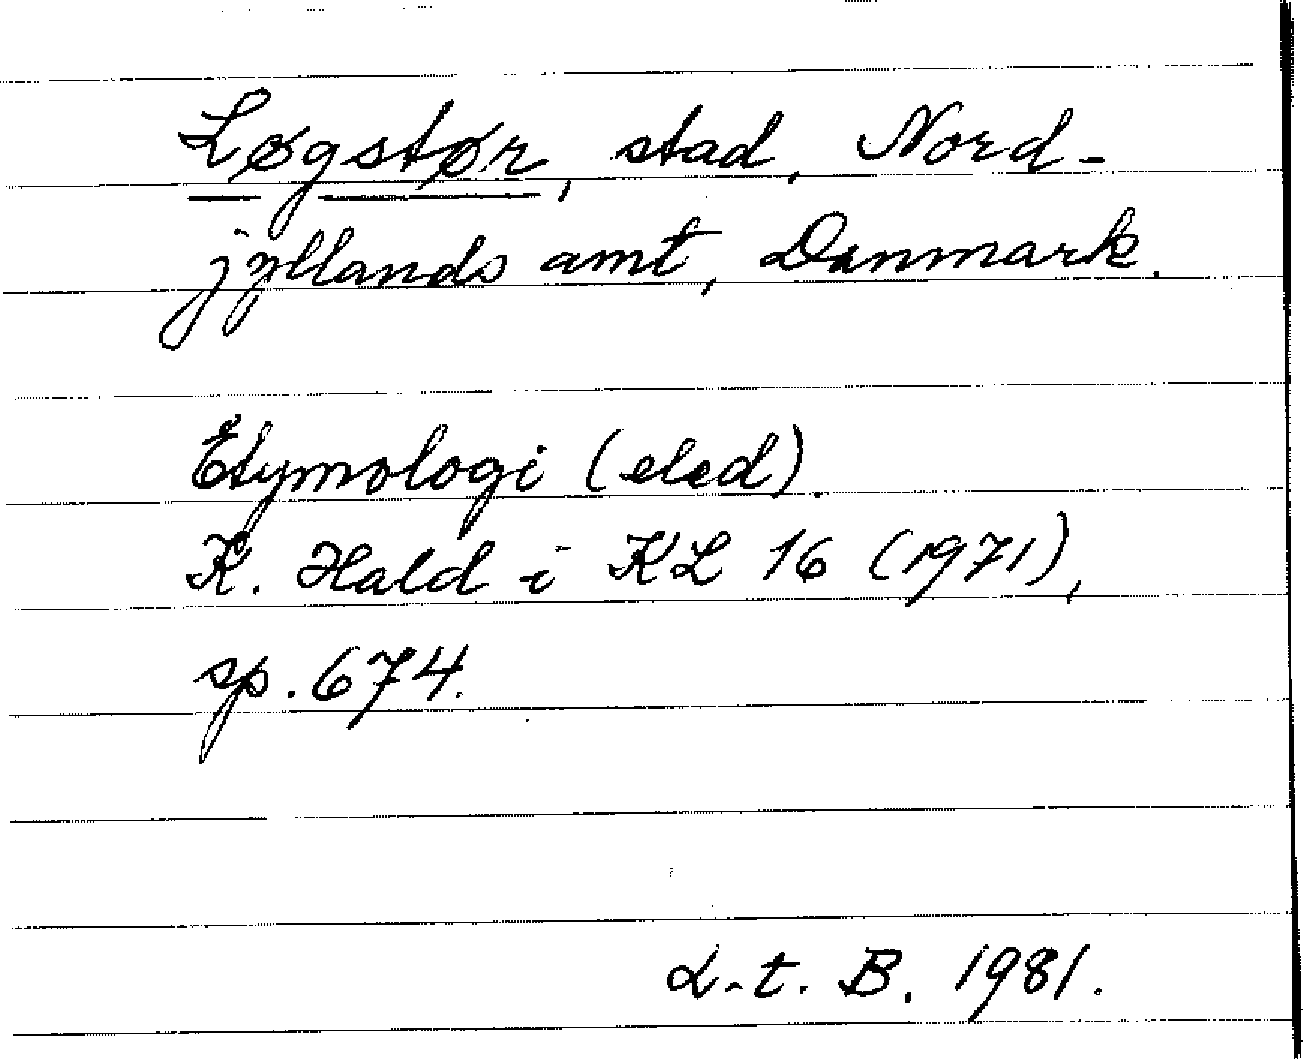 Løgstør, stad, Nord-
jyllands amt, Danmark.
Etymologi (eled).
K. Hald i KL 16 (1971),
sp. 674.
L-t. B. 1981.